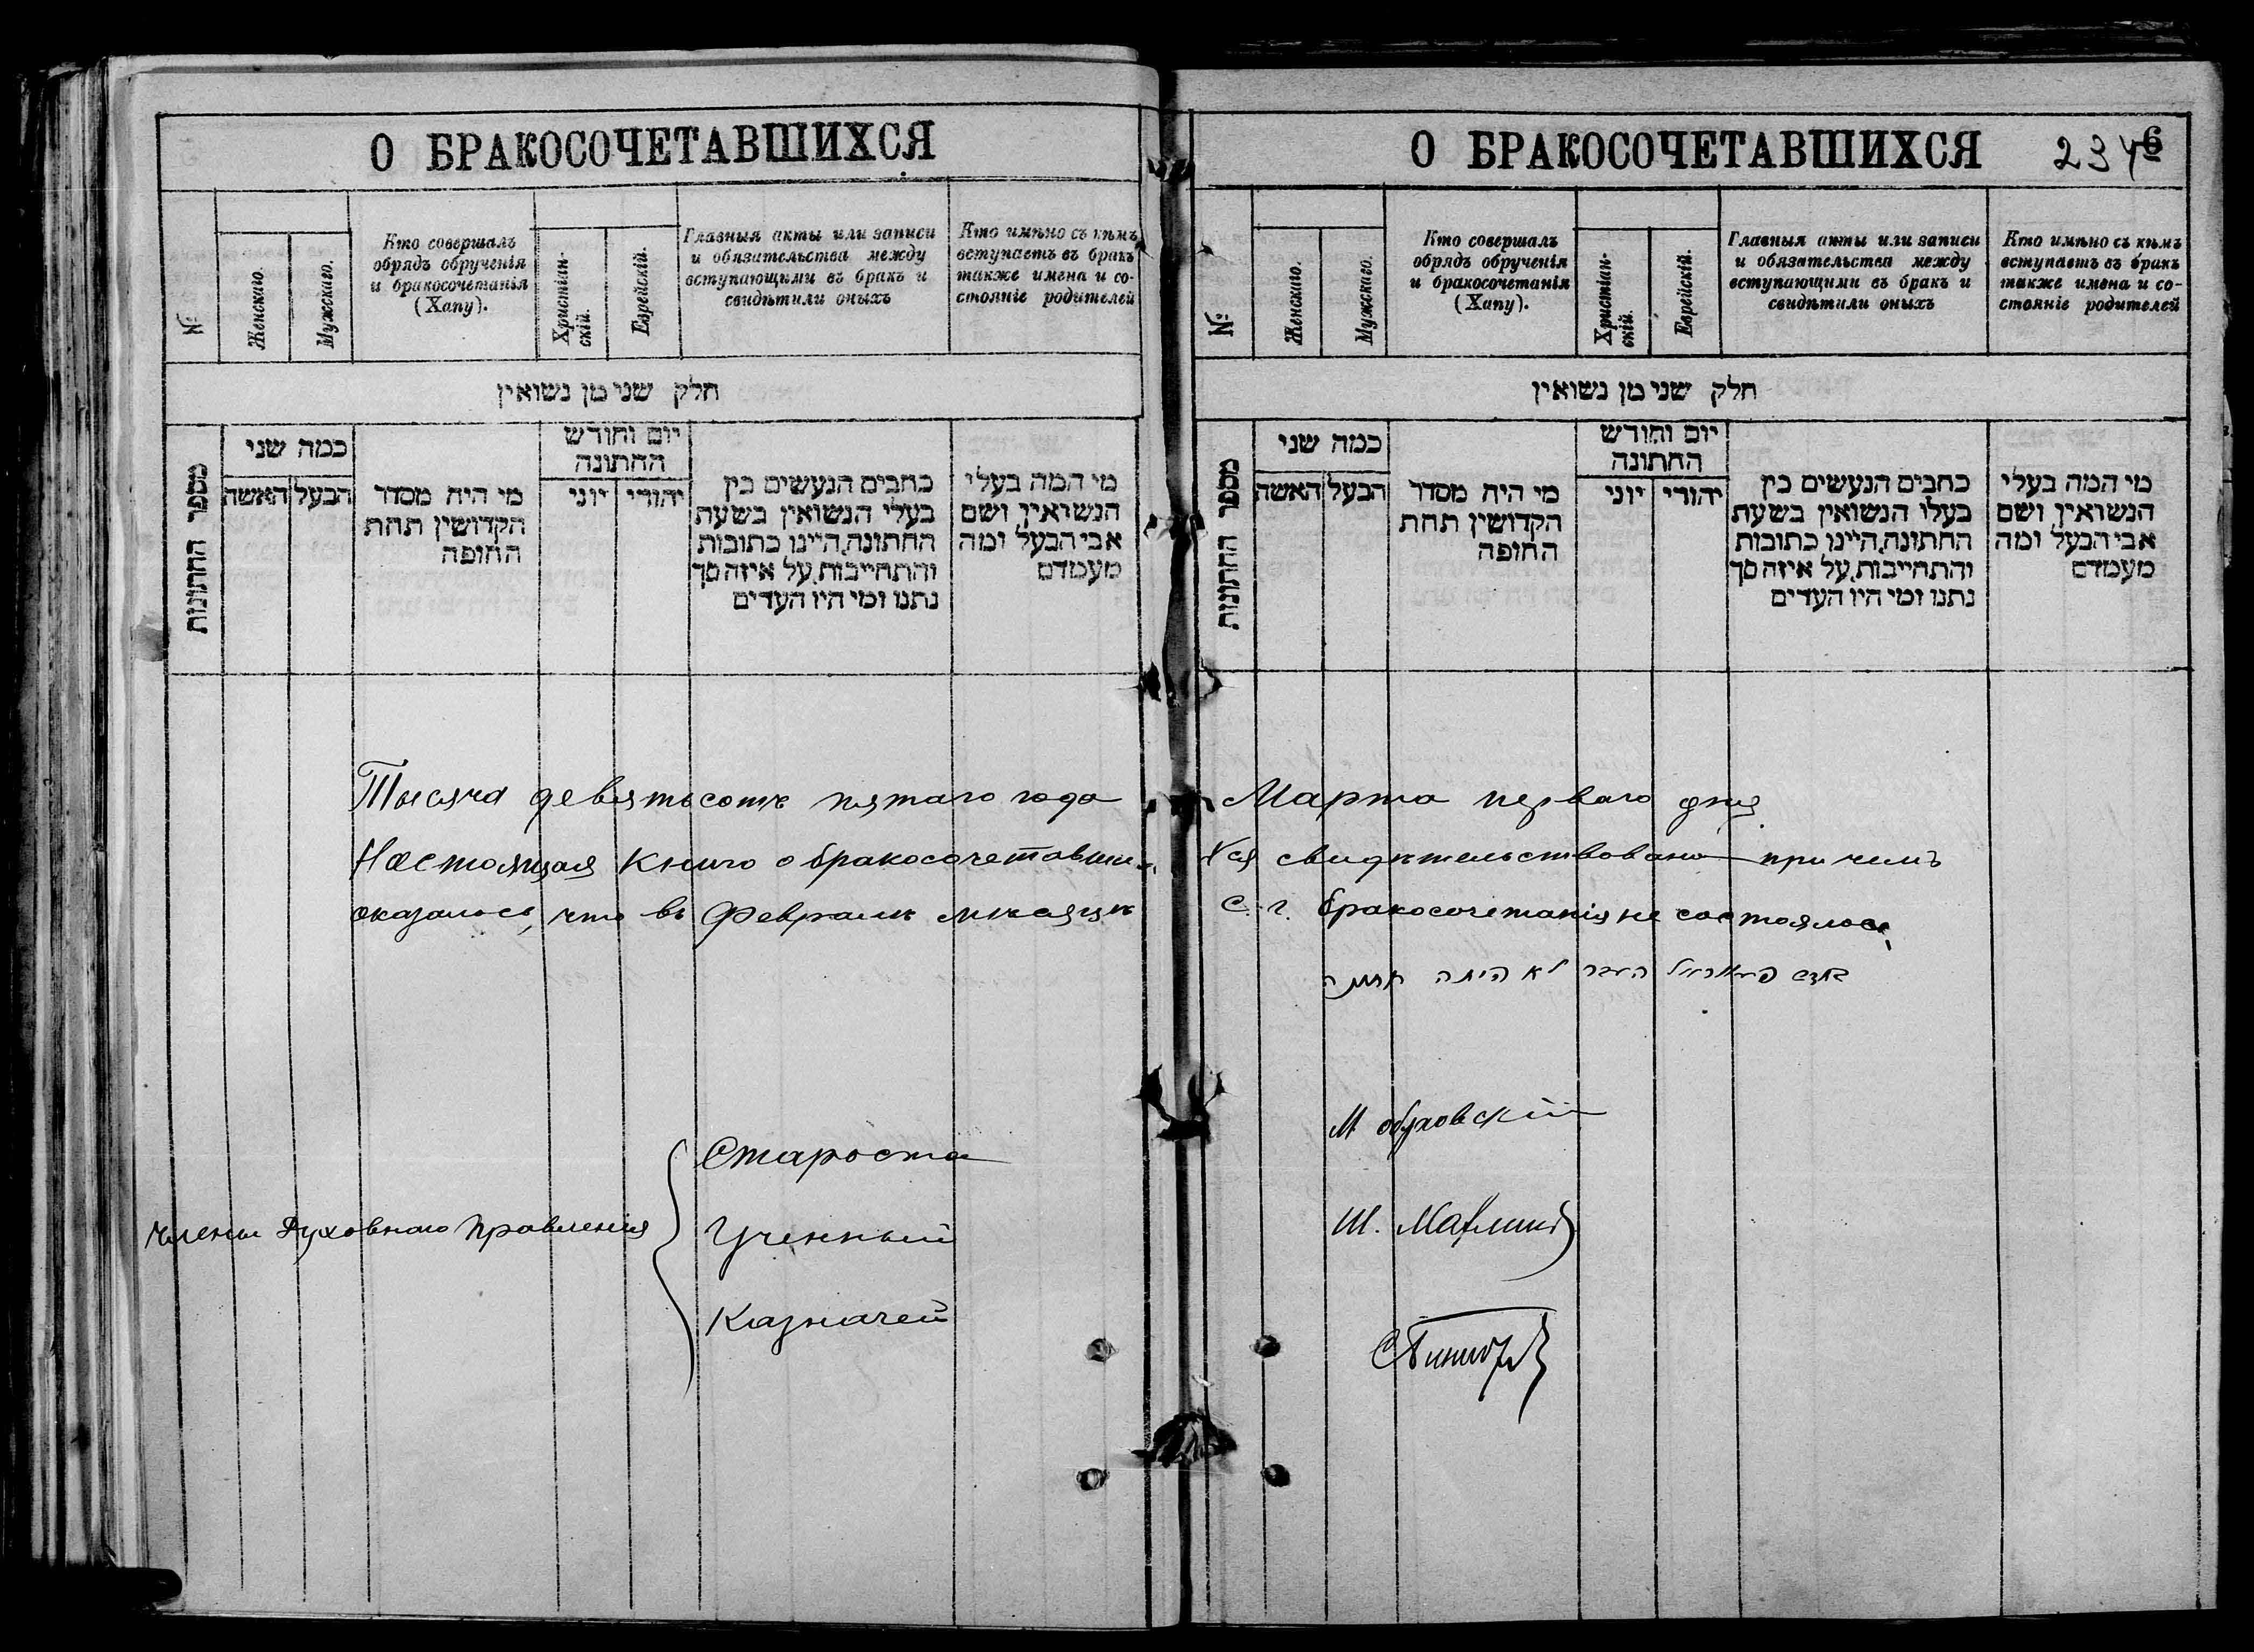 О БРАКОСОЧЕТАВШИХСЯ
№
Женскаго.
Мужскаго.
Кто совершалъ
обрядъ обрученія
и бракосочетанія
(Хапу).
Христіан-
скій.
Еврейскій.
Главныя акты или записи
и обязательства между
вступающими въ бракъ и
свидѣтили оныхъ
Кто имѣно съ кѣмъ
вступаетъ въ бракъ
также имена и со-
стояніе родителей
חלק שני מן נשואין
מספר החתונות
כמה שני
הבעל האשה
מי היה מסדר
הקדושין תחת
החופה
יום וחודש
החתונה
יהודי יוני
כתבים הנעשים בין
בעלי הנשואין בשעת
החתונה, היינו כתובות
והתחייבות, על איזה סך
נתנו ומי היו העדים
מי המה בעלי
הנשואין ושם
אבי הבעל ומה
מעמדם
Тысяча девятьсотъ пятаго года
Настоящая книга о бракосочетавши-
оказалось, что въ Февралѣ мѣсяцѣ
Члены Духовнаго Правленія
Староста
Ученный
Казначей
О БРАКОСОЧЕТАВШИХСЯ
234
№
Женскаго.
Мужскаго.
Кто совершалъ
обрядъ обрученія
и бракосочетанія
(Хапу).
Христіан-
скій.
Еврейскій.
Главныя акты или записи
и обязательства между
вступающими въ бракъ и
свидѣтили оныхъ
Кто имѣно съ кѣмъ
вступаетъ въ бракъ
также имена и со-
стояніе родителей
חלק שני מן נשואין
מספר החתונות
כמה שני
הבעל האשה
מי היה מסדר
הקדושין תחת
החופה
יום וחודש
החתונה
יהודי יוני
כתבים הנעשים בין
בעלי הנשואין בשעת
החתונה, היינו כתובות
והתחייבות, על איזה סך
נתנו ומי היו העדים
מי המה בעלי
הנשואין ושם
אבי הבעל ומה
מעמדם
Марта перваго дня
хся свидѣтельствована при чемъ
с. г. бракосочетанія не состоялось
לא היתה חתונה
М Обуховскій
Ш.